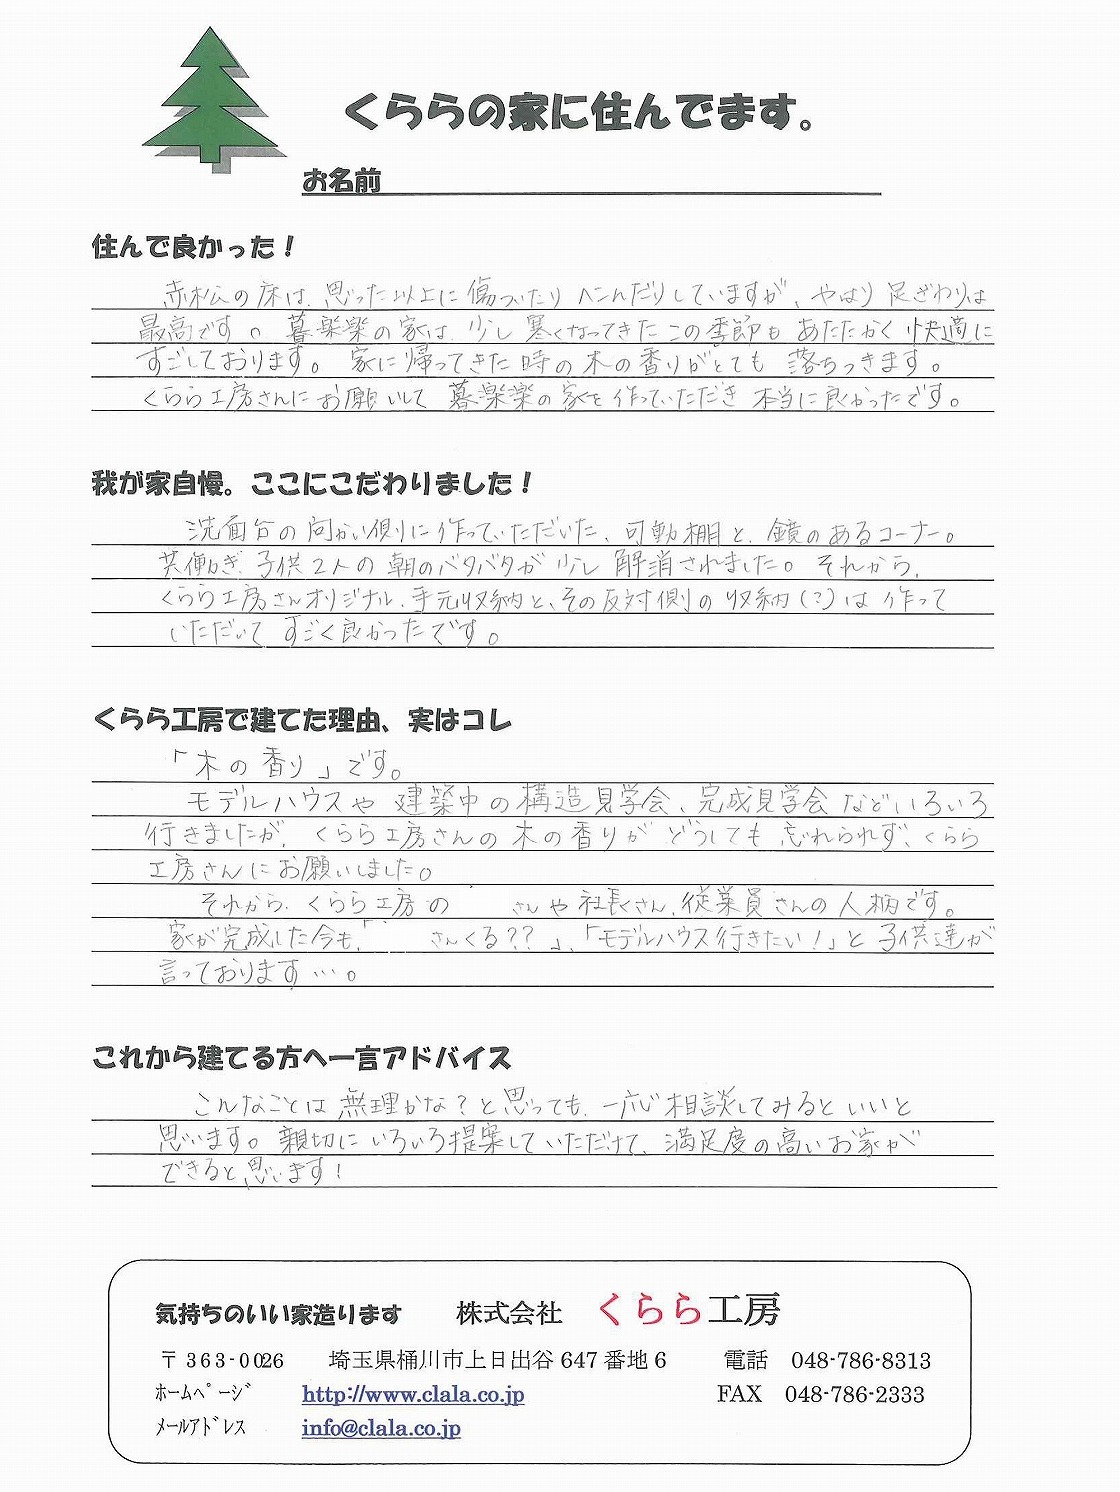 くららの家に住んでます。
お名前
住んで良かった！
赤松の床は、思った以上に傷ついたりへこんだりしていますが、やはり足ざわりは
最高です。暮楽楽の家は、少し寒くなってきたこの季節もあたたかく快適に
すごしております。家に帰ってきた時の木の香りがとても落ちつきます。
くらら工房さんにお願いして暮楽楽の家を作っていただき本当に良かったです。
我が家自慢。ここにこだわりました！
洗面台の向かい側に作っていただいた、可動棚と、鏡のあるコーナー。
共働き、子供2人の朝のバタバタが少し解消されました。それから、
くらら工房さんオリジナル、手元収納と、その反対側の収納(?)は作って
いただいてすごく良かったです。
くらら工房で建てた理由、実はコレ
「木の香り」です。
モデルハウスや建築中の構造見学会、完成見学会などいろいろ
行きましたが、くらら工房さんの木の香りがどうしても忘れられず、くらら
工房さんにお願いしました。
それから、くらら工房の さんや社長さん、従業員さんの人柄です。
家が完成した今も、「 さんくる??」、「モデルハウス行きたい！」と子供達が
言っております…。
これから建てる方へ一言アドバイス
こんなことは無理かな？と思っても、一応相談してみるといいと
思います。親切にいろいろ提案していただけて、満足度の高いお家が
できると思います！
気持ちのいい家造ります 株式会社 くらら工房
〒363-0026 埼玉県桶川市上日出谷647番地6 電話 048-786-8313
ホームページ http://www.clala.co.jp FAX 048-786-2333
メールアドレス info@clala.co.jp